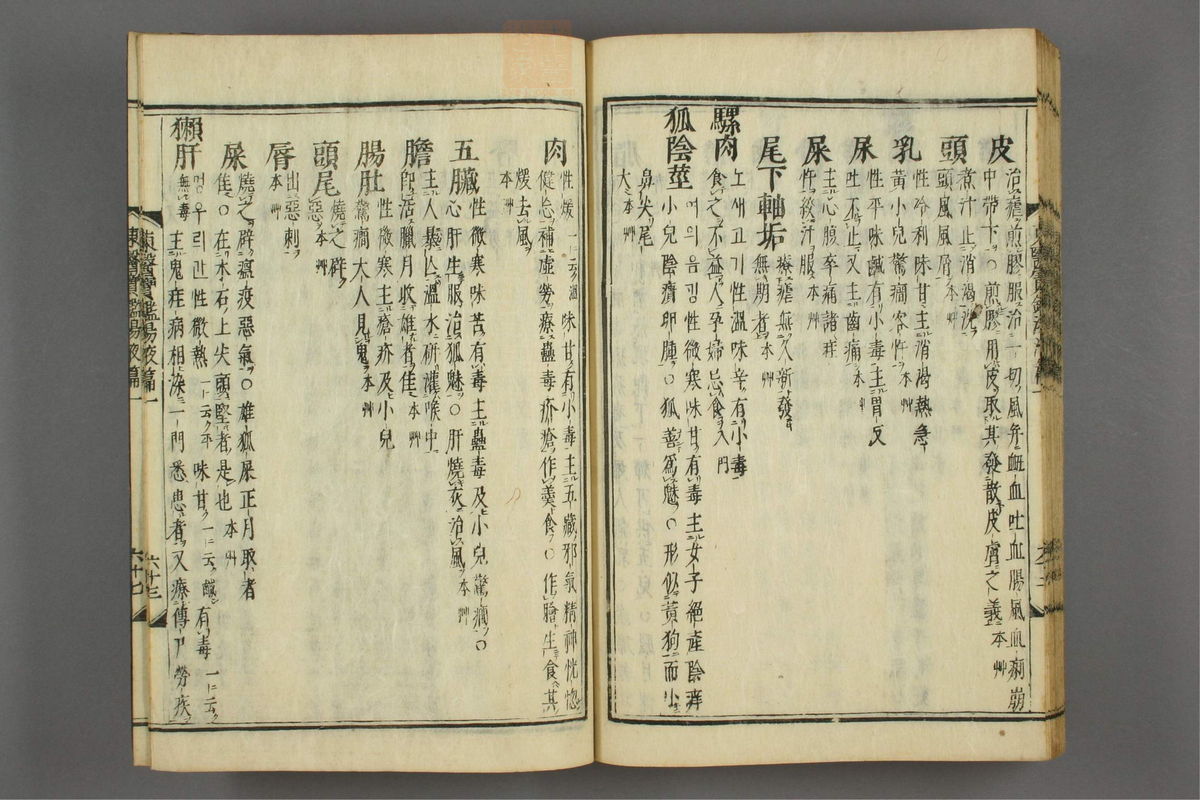 皮 治瘧煎膠服治一切風并衄血吐血腸風血痢崩
中帶下○煎膠用皮取其發散皮膚之義本艸
頭 煮汁止消渴洗
頭風風屑本艸
乳 性冷利味甘主消渴熱急
黃小兒驚癎客忤本艸
尿 性平味鹹有小毒主胃反
吐不止又主齒痛本艸
屎 主心腹卒痛諸疰
忤絞汁服本艸
尾下軸垢 療瘧無久新發
無期者本艸
騾肉 노새고기性溫味辛有小毒
食之不益人孕婦忌食入門
狐陰莖 여의음깅性微寒味甘有毒主女子絕產陰痒
小兒陰㿉卵腫○狐善爲魅○形似黃狗而小
鼻尖尾
大本艸
肉 性煖一云溫味甘有小毒主五藏邪氣精神恍惚
健忘補虛勞療蠱毒疥瘡作羹食○作膾生食其
煖去風
本艸
五臟 性微寒味苦有毒主蠱毒及小兒驚癎○
心肝生服治狐魅○肝燒灰治風本艸
膽 主人暴亡溫水硏灌喉中
卽活臘月收雄者佳本艸
腸肚 性微寒主瘡疥及小兒
驚癎大人見鬼本艸
頭尾 燒之辟
惡本艸
脣 出惡刺
本艸
屎 燒之辟瘟疫惡氣○雄狐屎正月取者
佳○在木石上尖頭堅者是也本艸
獺肝 멍우릐간性微熱一云平味甘一云鹹有毒一云
無毒主鬼疰病相染一門悉患者又療傳尸勞疾
東醫寶鑑湯液篇一
六十七